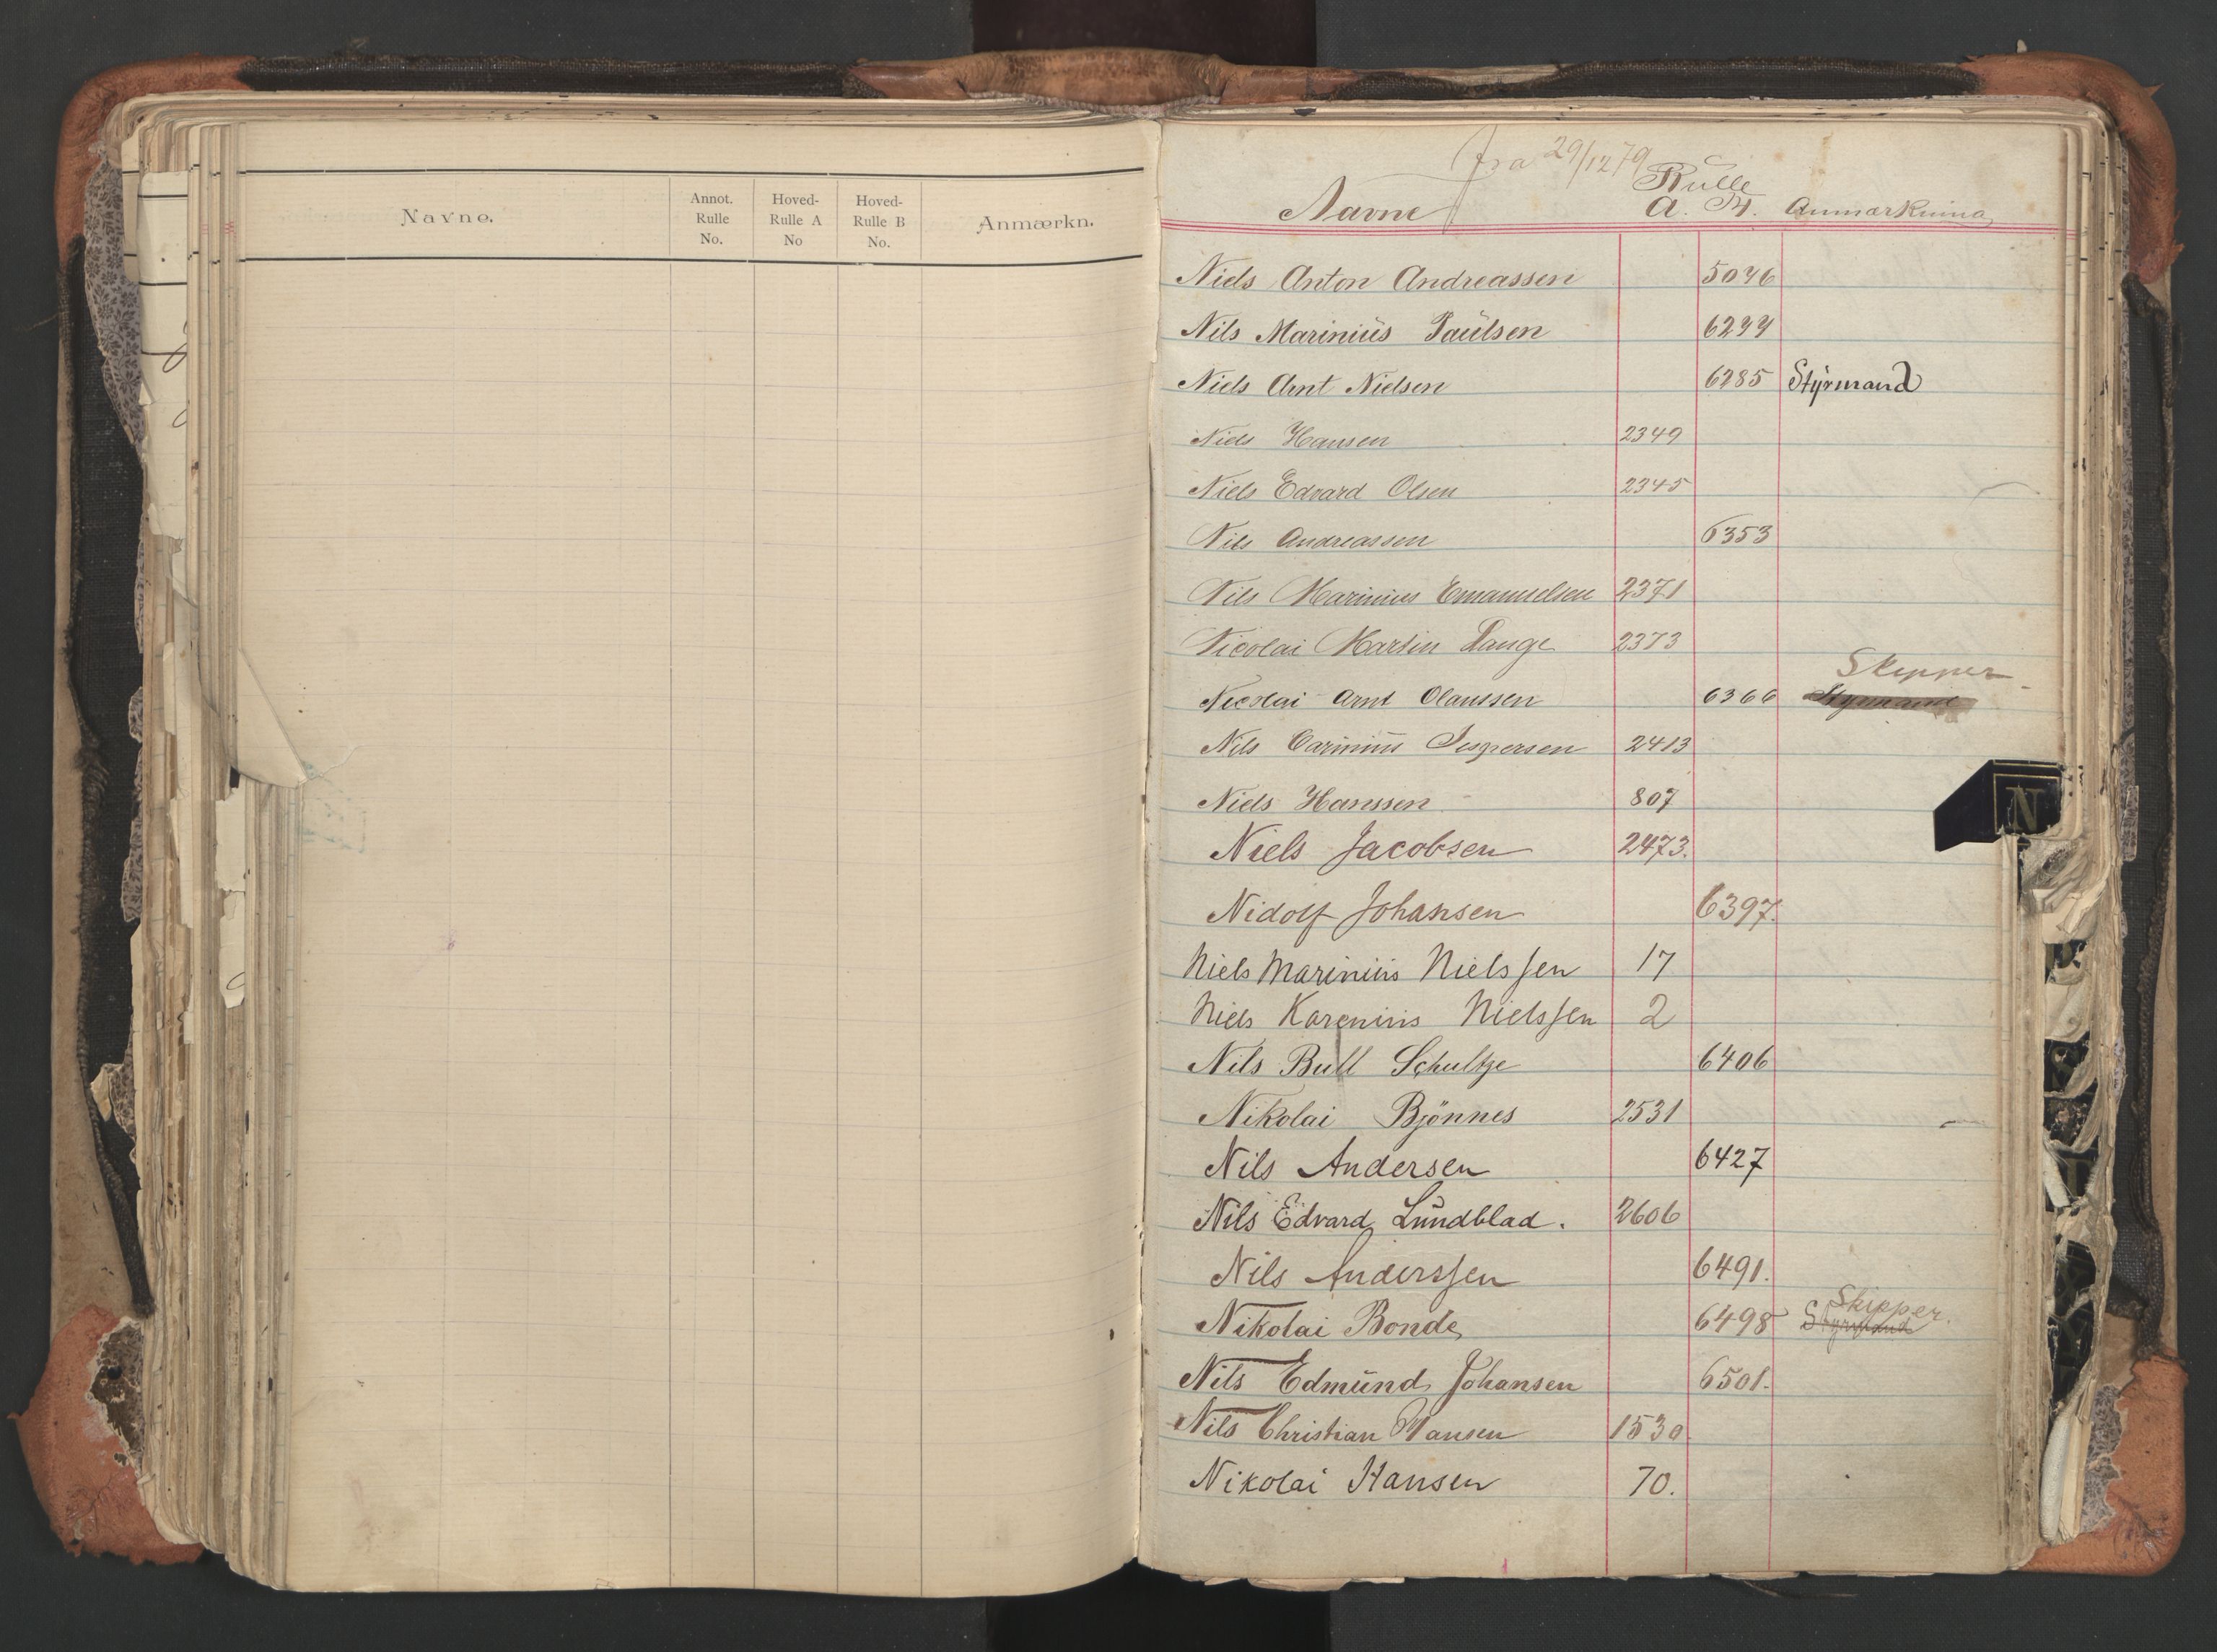 Navne.
Annot. Rulle No.
Hoved-Rulle A No
Hoved-Rulle B No.
Anmærkn.
fra 29/12 79
Rulle
Navne A. B. Anmærkning
Niels Anton Andreassen 5046
Nils Marinius Paulsen 6244
Niels Arnt Nielsen 6285 Styrmand
Niels Hansen 2349
Niels Edvard Olsen 2345
Nils Andreassen 6353
Nils Marinius Emanuelsen 2371
Nicolai Martin Lange 2373
Skipper
Nicolai Arnt Olaussen 6366 Styrmand
Nils Carinius Jespersen 2413
Niels Hanssen 807
N
Niels Jacobsen 2473.
Nidolf Johansen 6397.
Niels Marinius Nielssen 17
Niels Karenius Nielssen 2
Nils Bull Schultze 6406
Nikolai Bjönnes 2531
Nils Andersen 6427
Nils Edvard Lundblad. 2606
Nils Anderssen 6491.
Skipper.
Nikolai Bonde 6498 Styrmand
Nils Edmund Johansen 6501.
Nils Christian Hansen 1530
Nikolai Hansen 70.